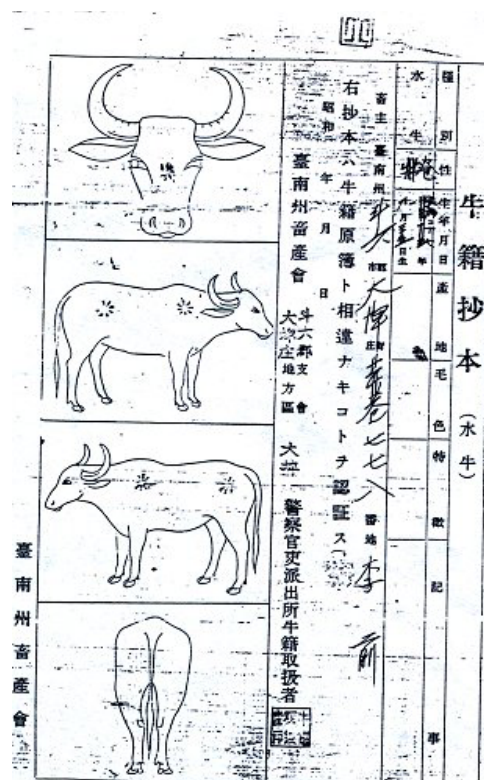 牛籍抄本（水牛）
種別 性 生年月日 產地 毛色 特徵 記事
水牛
畜主 臺南州 斗六 市郡 大埤 庄街 七七八 番地 李 前
右抄本ハ牛籍原簿ト相違ナキコトヲ認証ス
昭和 年 月 日
臺南州畜產會
斗六郡支會
大埤庄地方區
大埤 警察官吏派出所牛籍取扱者
臺南州畜產會